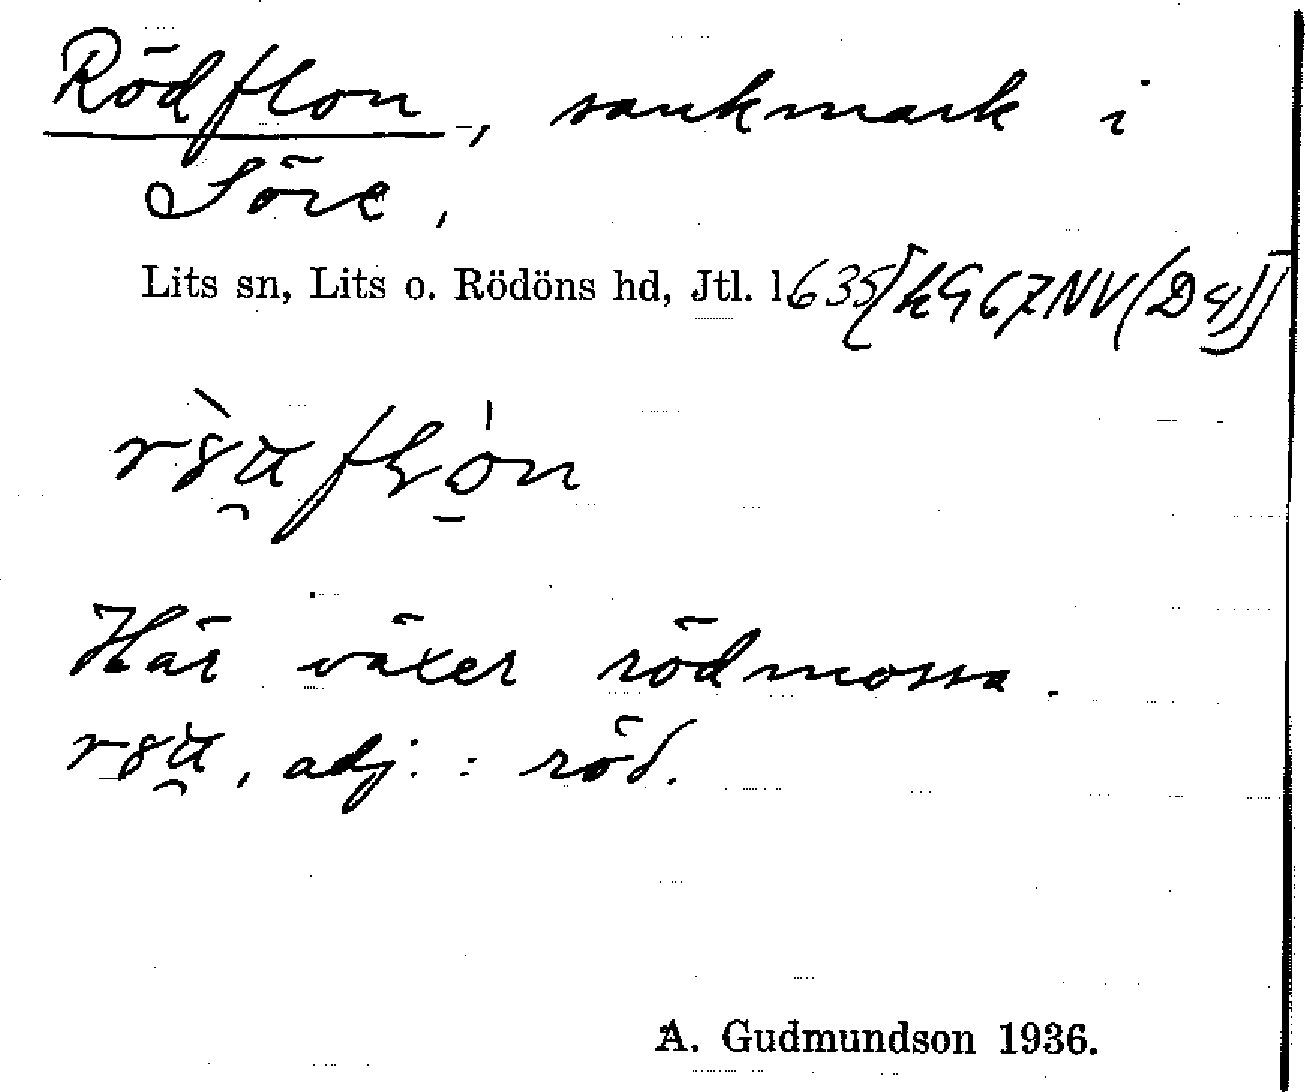 Rödflon, sankmark i
Söre,
Lits sn, Lits o. Rödöns hd, Jtl. l. 635 [kG67NV(D4)]
Här växer rödmossa.
adj. : röd.
A. Gudmundson 1936.